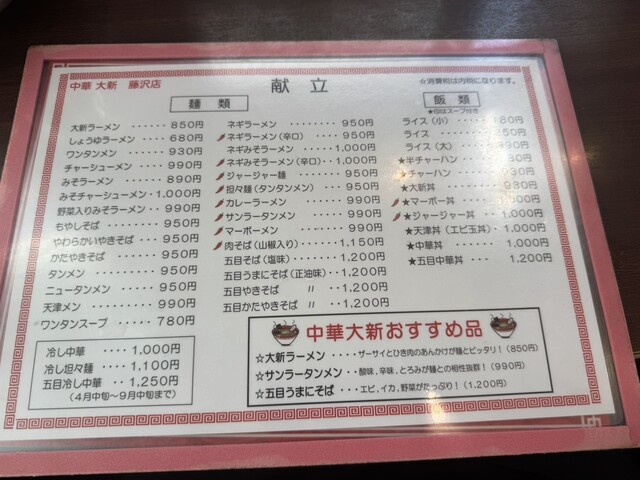 中華 大新 藤沢店
献立
☆消費税は内税になります。
麺類
大新ラーメン ‥‥‥ 850円
しょうゆラーメン ‥‥ 680円
ワンタンメン ‥‥‥ 930円
チャーシューメン ‥‥ 990円
みそラーメン ‥‥‥ 890円
みそチャーシューメン‥1,000円
野菜入りみそラーメン‥ 990円
もやしそば ‥‥‥‥ 950円
やわらかいやきそば ‥ 950円
かたやきそば ‥‥‥ 950円
タンメン ‥‥‥‥ 950円
ニュータンメン ‥‥‥ 950円
天津メン ‥‥‥‥ 990円
ワンタンスープ ‥‥‥ 780円
冷し中華 ‥‥ 1,000円
冷し坦々麺 ‥‥ 1,100円
五目冷し中華 ‥ 1,250円
(4月中旬〜9月中旬まで)
ネギラーメン ‥‥‥‥ 950円
ネギラーメン(辛口) ‥‥ 950円
ネギみそラーメン ‥‥‥1,000円
ネギみそラーメン(辛口)‥1,000円
ジャージャー麺 ‥‥‥ 950円
担々麺(タンタンメン) ‥‥ 950円
カレーラーメン ‥‥‥ 990円
サンラータンメン ‥‥‥ 990円
マーボーメン ‥‥‥‥ 990円
肉そば(山椒入り) ‥‥‥1,150円
五目そば(塩味) ‥‥‥1,200円
五目うまにそば(正油味)‥1,200円
五目やきそば 〃 ‥‥1,200円
五目かたやきそば 〃 ‥1,200円
飯類
★印はスープ付き
ライス(小)
ライス
ライス(大)
★半チャーハン
★チャーハン
★大新丼 ‥‥‥ 930円
★マーボー丼
★ジャージャー丼 ‥ 1,000円
★天津丼(エビ玉丼)‥ 1,000円
★中華丼 ‥‥‥ 1,000円
★五目中華丼 ‥‥ 1,200円
中華大新おすすめ品
☆大新ラーメン ‥‥‥ザーサイとひき肉のあんかけが麺とピッタリ!(850円)
☆サンラータンメン ‥酸味、辛味、とろみが麺との相性抜群!(990円)
☆五目うまにそば ‥‥エビ、イカ、野菜がたっぷり!(1,200円)